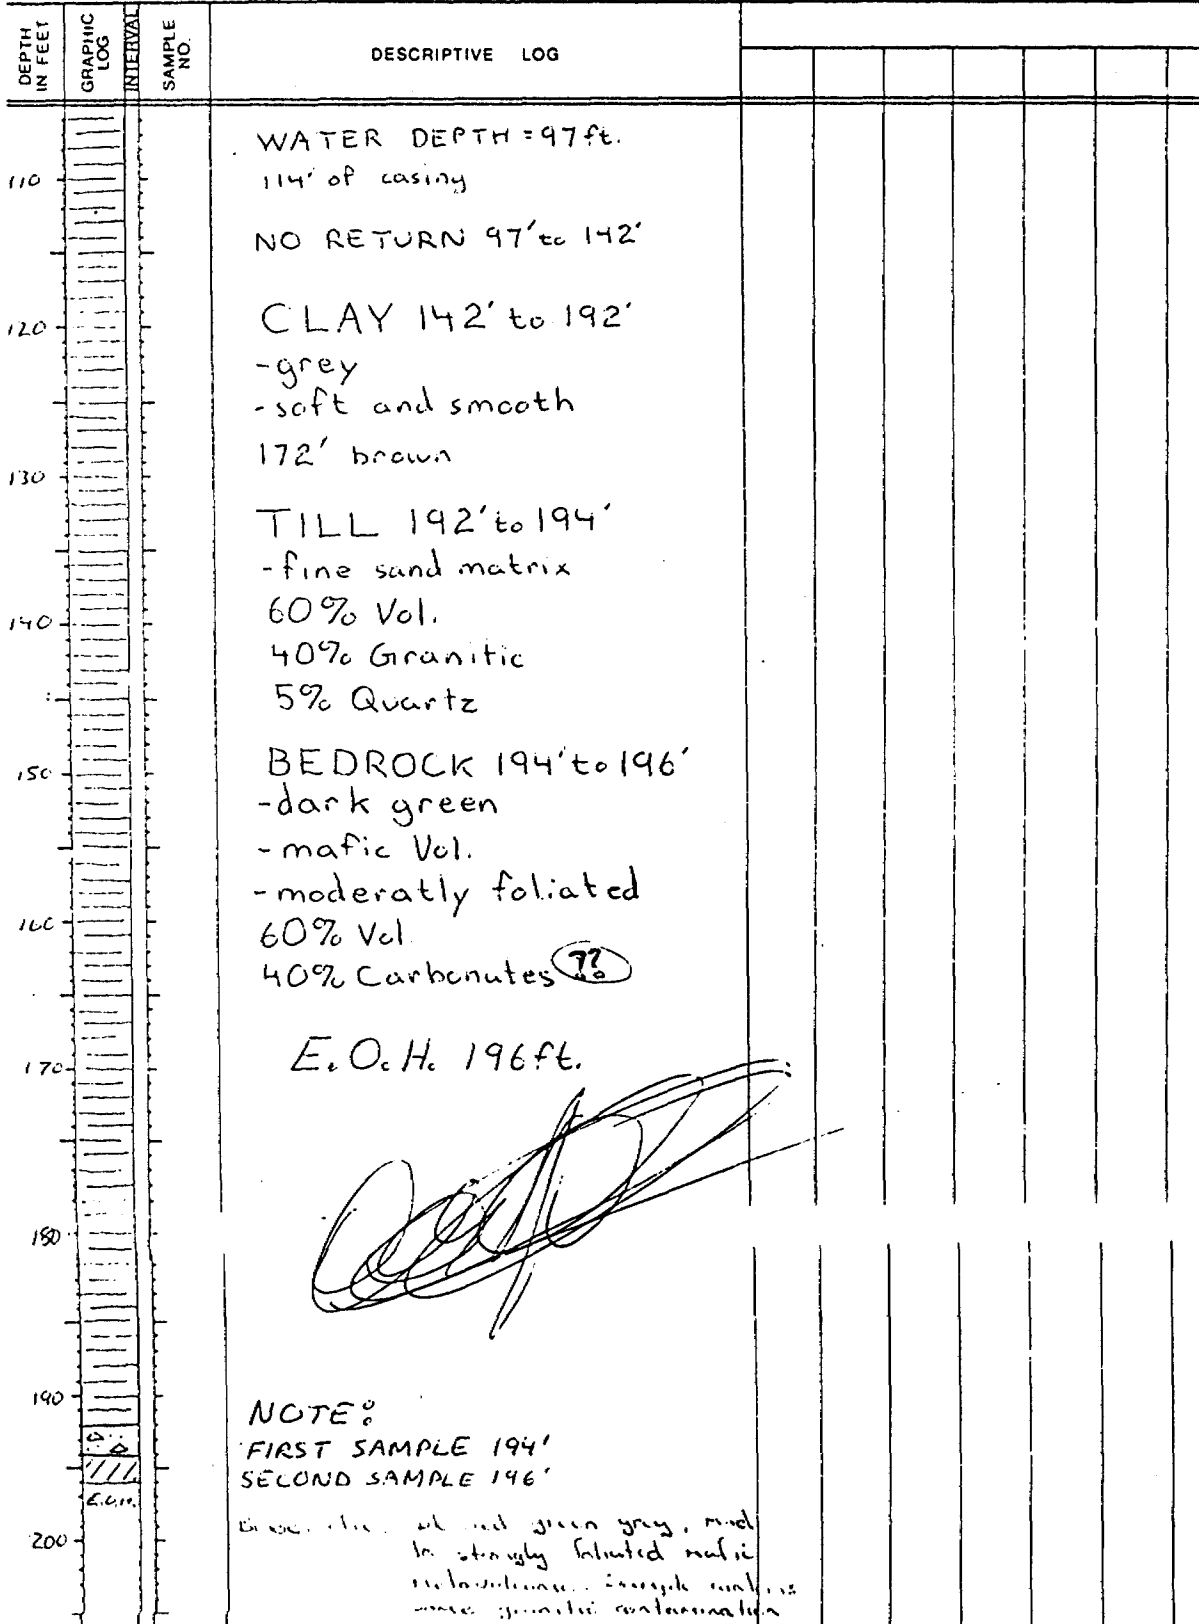 DEPTH IN FEET
GRAPHIC LOG
INTERVAL
SAMPLE NO.
DESCRIPTIVE LOG
WATER DEPTH = 97 ft.
114' of casing
110
NO RETURN 97' to 142'
CLAY 142' to 192'
120
-grey
-soft and smooth
172' brown
130
TILL 192' to 194'
-fine sand matrix
60% Vol.
140
40% Granitic
5% Quartz
BEDROCK 194' to 196'
150
-dark green
-mafic Vol.
-moderatly foliated
160
60% Vol
40% Carbonates ??
E.O.H. 196ft.
170
180
190
NOTE:
FIRST SAMPLE 194'
SECOND SAMPLE 196'
E.O.H.
green grey, mod
200
to strongly foliated mafic
contamination